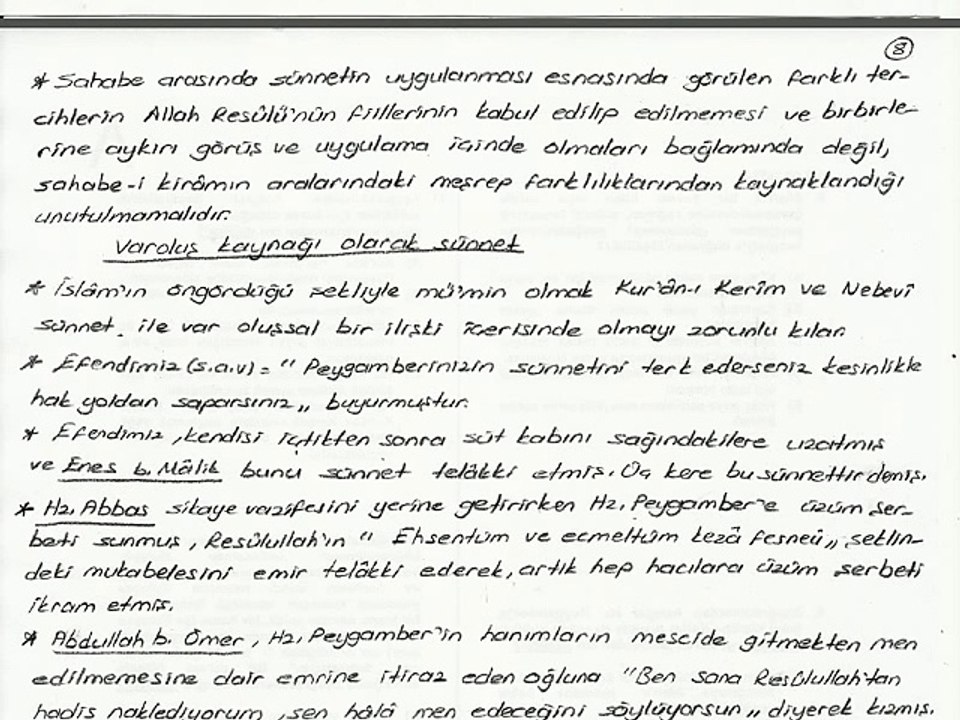 8
* Sahabe arasında sünnetin uygulanması esnasında görülen farklı ter-
cihlerin Allah Resûlü'nün fiillerinin kabul edilip edilmemesi ve birbirle-
rine aykırı görüş ve uygulama içinde olmaları bağlamında değil,
sahabe-i kirâmın aralarındaki meşrep farklılıklarından kaynaklandığı
unutulmamalıdır.
Varoluş kaynağı olarak sünnet
* İslâm'ın öngördüğü şekliyle mü'min olmak Kur'ân-ı Kerîm ve Nebevî
sünnet ile var oluşsal bir ilişki içerisinde olmayı zorunlu kılar.
* Efendimiz (s.a.v) = " Peygamberinizin sünnetini terk ederseniz kesinlikle
hak yoldan saparsınız,, buyurmuştur.
* Efendimiz, kendisi içtikten sonra süt kabını sağındakilere uzatmış
ve Enes b. Mâlik bunu sünnet telâkki etmiş. Üç kere bu sünnettir demiş.
* Hz. Abbas sikaye vazifesini yerine getirirken Hz. Peygamber'e üzüm şer-
beti sunmuş, Resûlullah'ın " Ehsentüm ve ecmeltüm kezâ fesneû,, şeklin-
deki mukabelesini emir telâkki ederek, artık hep hacılara üzüm şerbeti
ikram etmiş.
* Abdullah b. Ömer, Hz. Peygamber'in hanımların mescide gitmekten men
edilmemesine dair emrine itiraz eden oğluna "Ben sana Resûlullah'tan
hadis naklediyorum, sen hâlâ men edeceğini söylüyorsun,, diyerek kızmış.